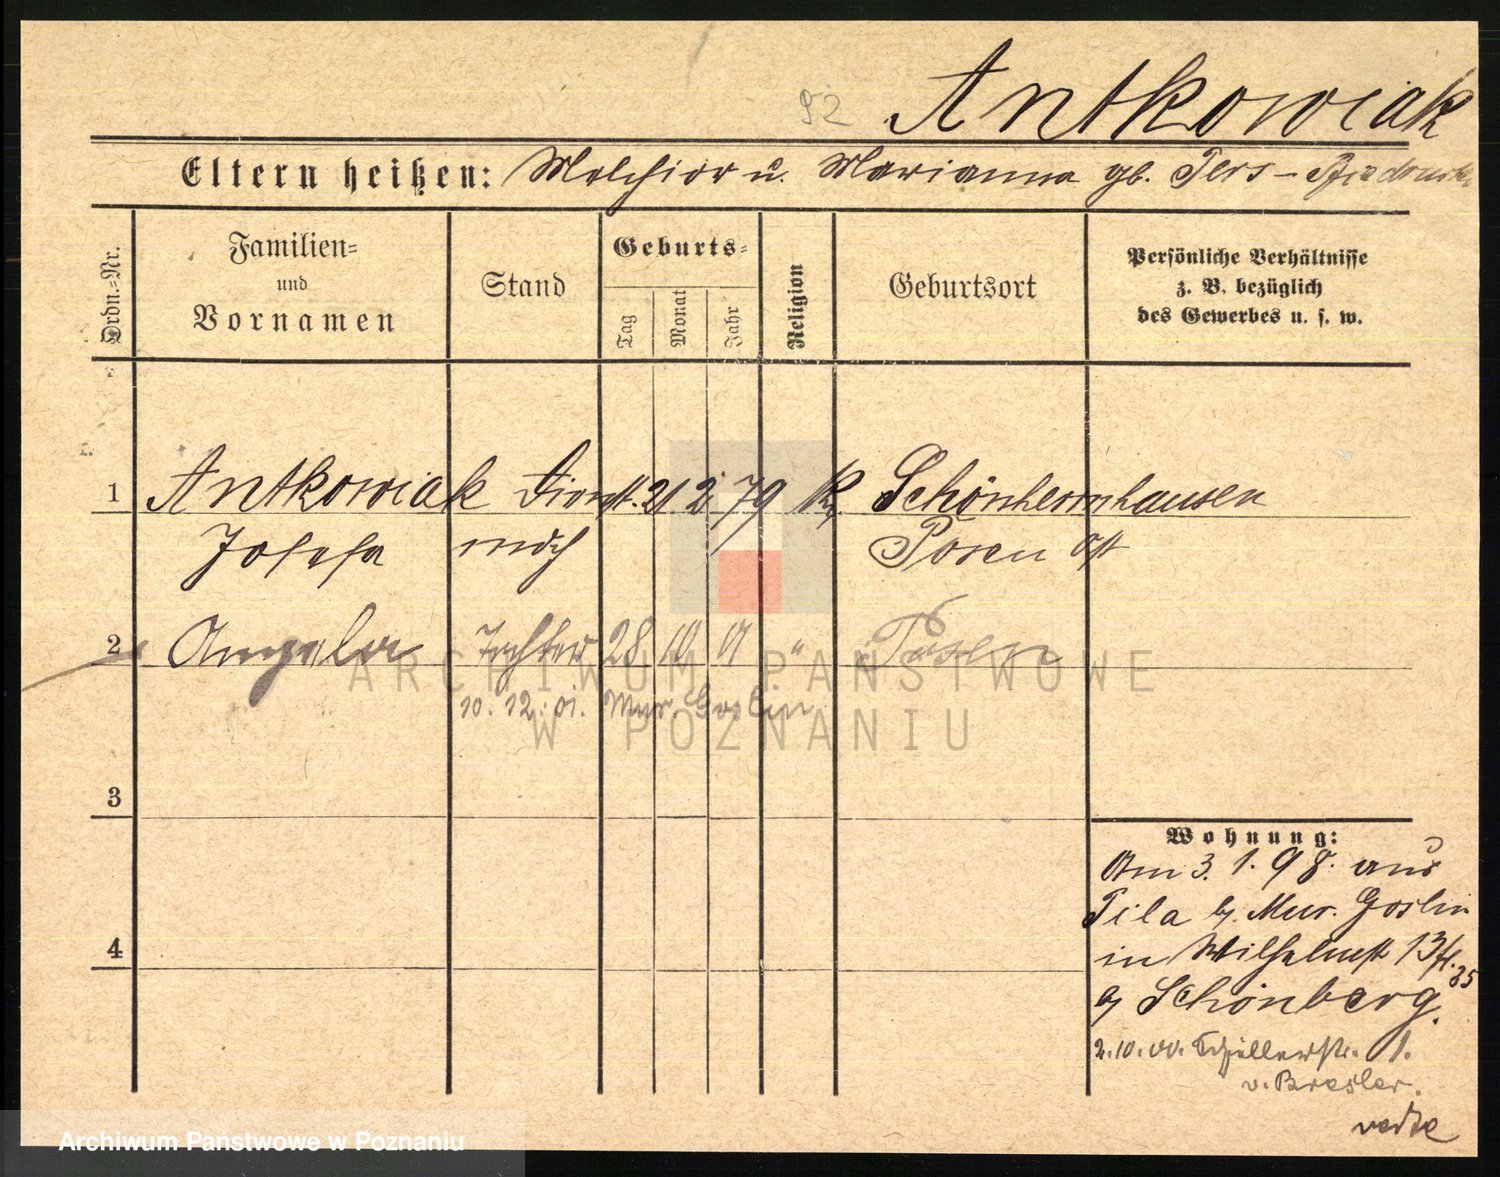 92 Antkowiak
Eltern heißen: Melchior u. Marianna gb. Pers -
Ordn.=Nr.
Familien=
und
Vornamen
Stand
Geburts=
Tag
Monat
Jahr
Religion
Geburtsort
Persönliche Verhältnisse
z. B. bezüglich
des Gewerbes u. s. w.
1 Antkowiak Dienst. 21 2. 79 k. Schönherrnhausen
Josefa mdch Posen Ost
2 Angela Tochter 28 10 01 " Posen
10. 12. 01. Mur. Goslin
3
4
Wohnung:
Am 3. 1. 98. aus
Pila b/ Mur. Goslin
in Wilhelmstr 13
b/ Schönberg.
2. 10. 00. Schillerstr. 1.
v. Bresler.
ARCHIWUM PAŃSTWOWE
W POZNANIU
Archiwum Państwowe w Poznaniu